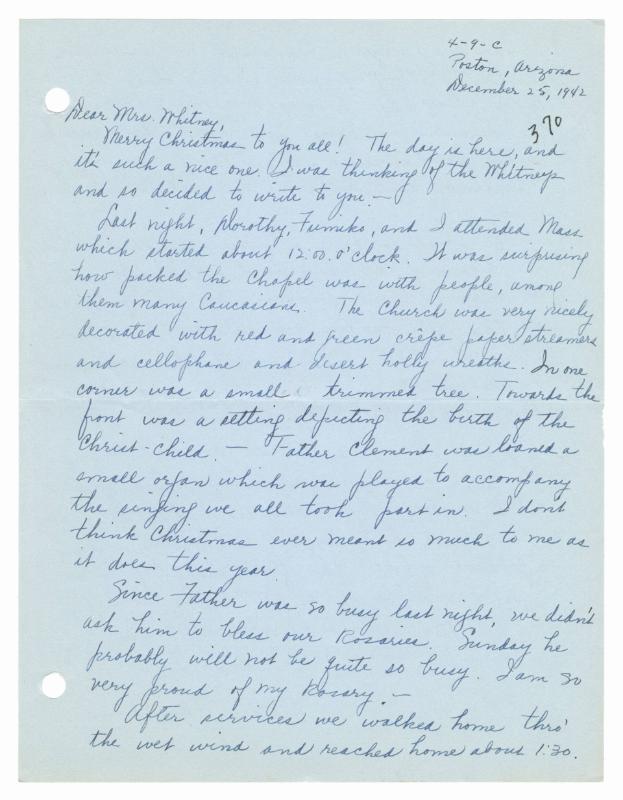 4-9-C
Poston, Arizona
December 25, 1942
370
Dear Mrs. Whitney,
Merry Christmas to you all! The day is here, and
it's such a nice one. I was thinking of the Whitneys
and so decided to write to you.—
Last night, Dorothy, Fumiko, and I attended Mass
which started about 12:00 o'clock. It was surprising
how packed the Chapel was with people, among
them many Caucasians. The Church was very nicely
decorated with red and green crêpe paper streamers
and cellophane and desert holly wreaths. In one
corner was a small trimmed tree. Towards the
front was a setting depicting the birth of the
Christ-child. — Father Clement was loaned a
small organ which was played to accompany
the singing we all took part in. I don't
think Christmas ever meant so much to me as
it does this year.
Since Father was so busy last night, we didn't
ask him to bless our Rosaries. Sunday he
probably will not be quite so busy. I am so
very proud of my Rosary.—
After services we walked home thro'
the wet wind and reached home about 1:30.